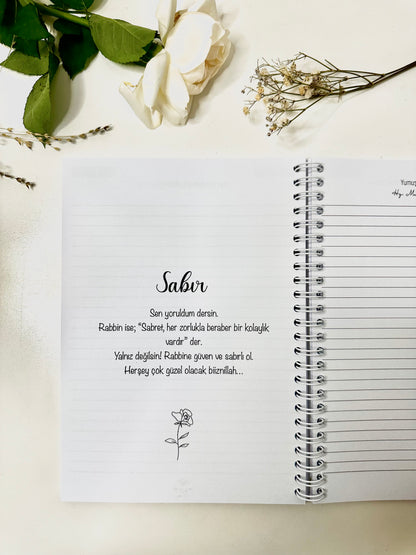 Sabır
Sen yoruldum dersin.
Rabbin ise; "Sabret, her zorlukla beraber bir kolaylık
vardır" der.
Yalnız değilsin! Rabbine güven ve sabırlı ol.
Herşey çok güzel olacak biiznillah...